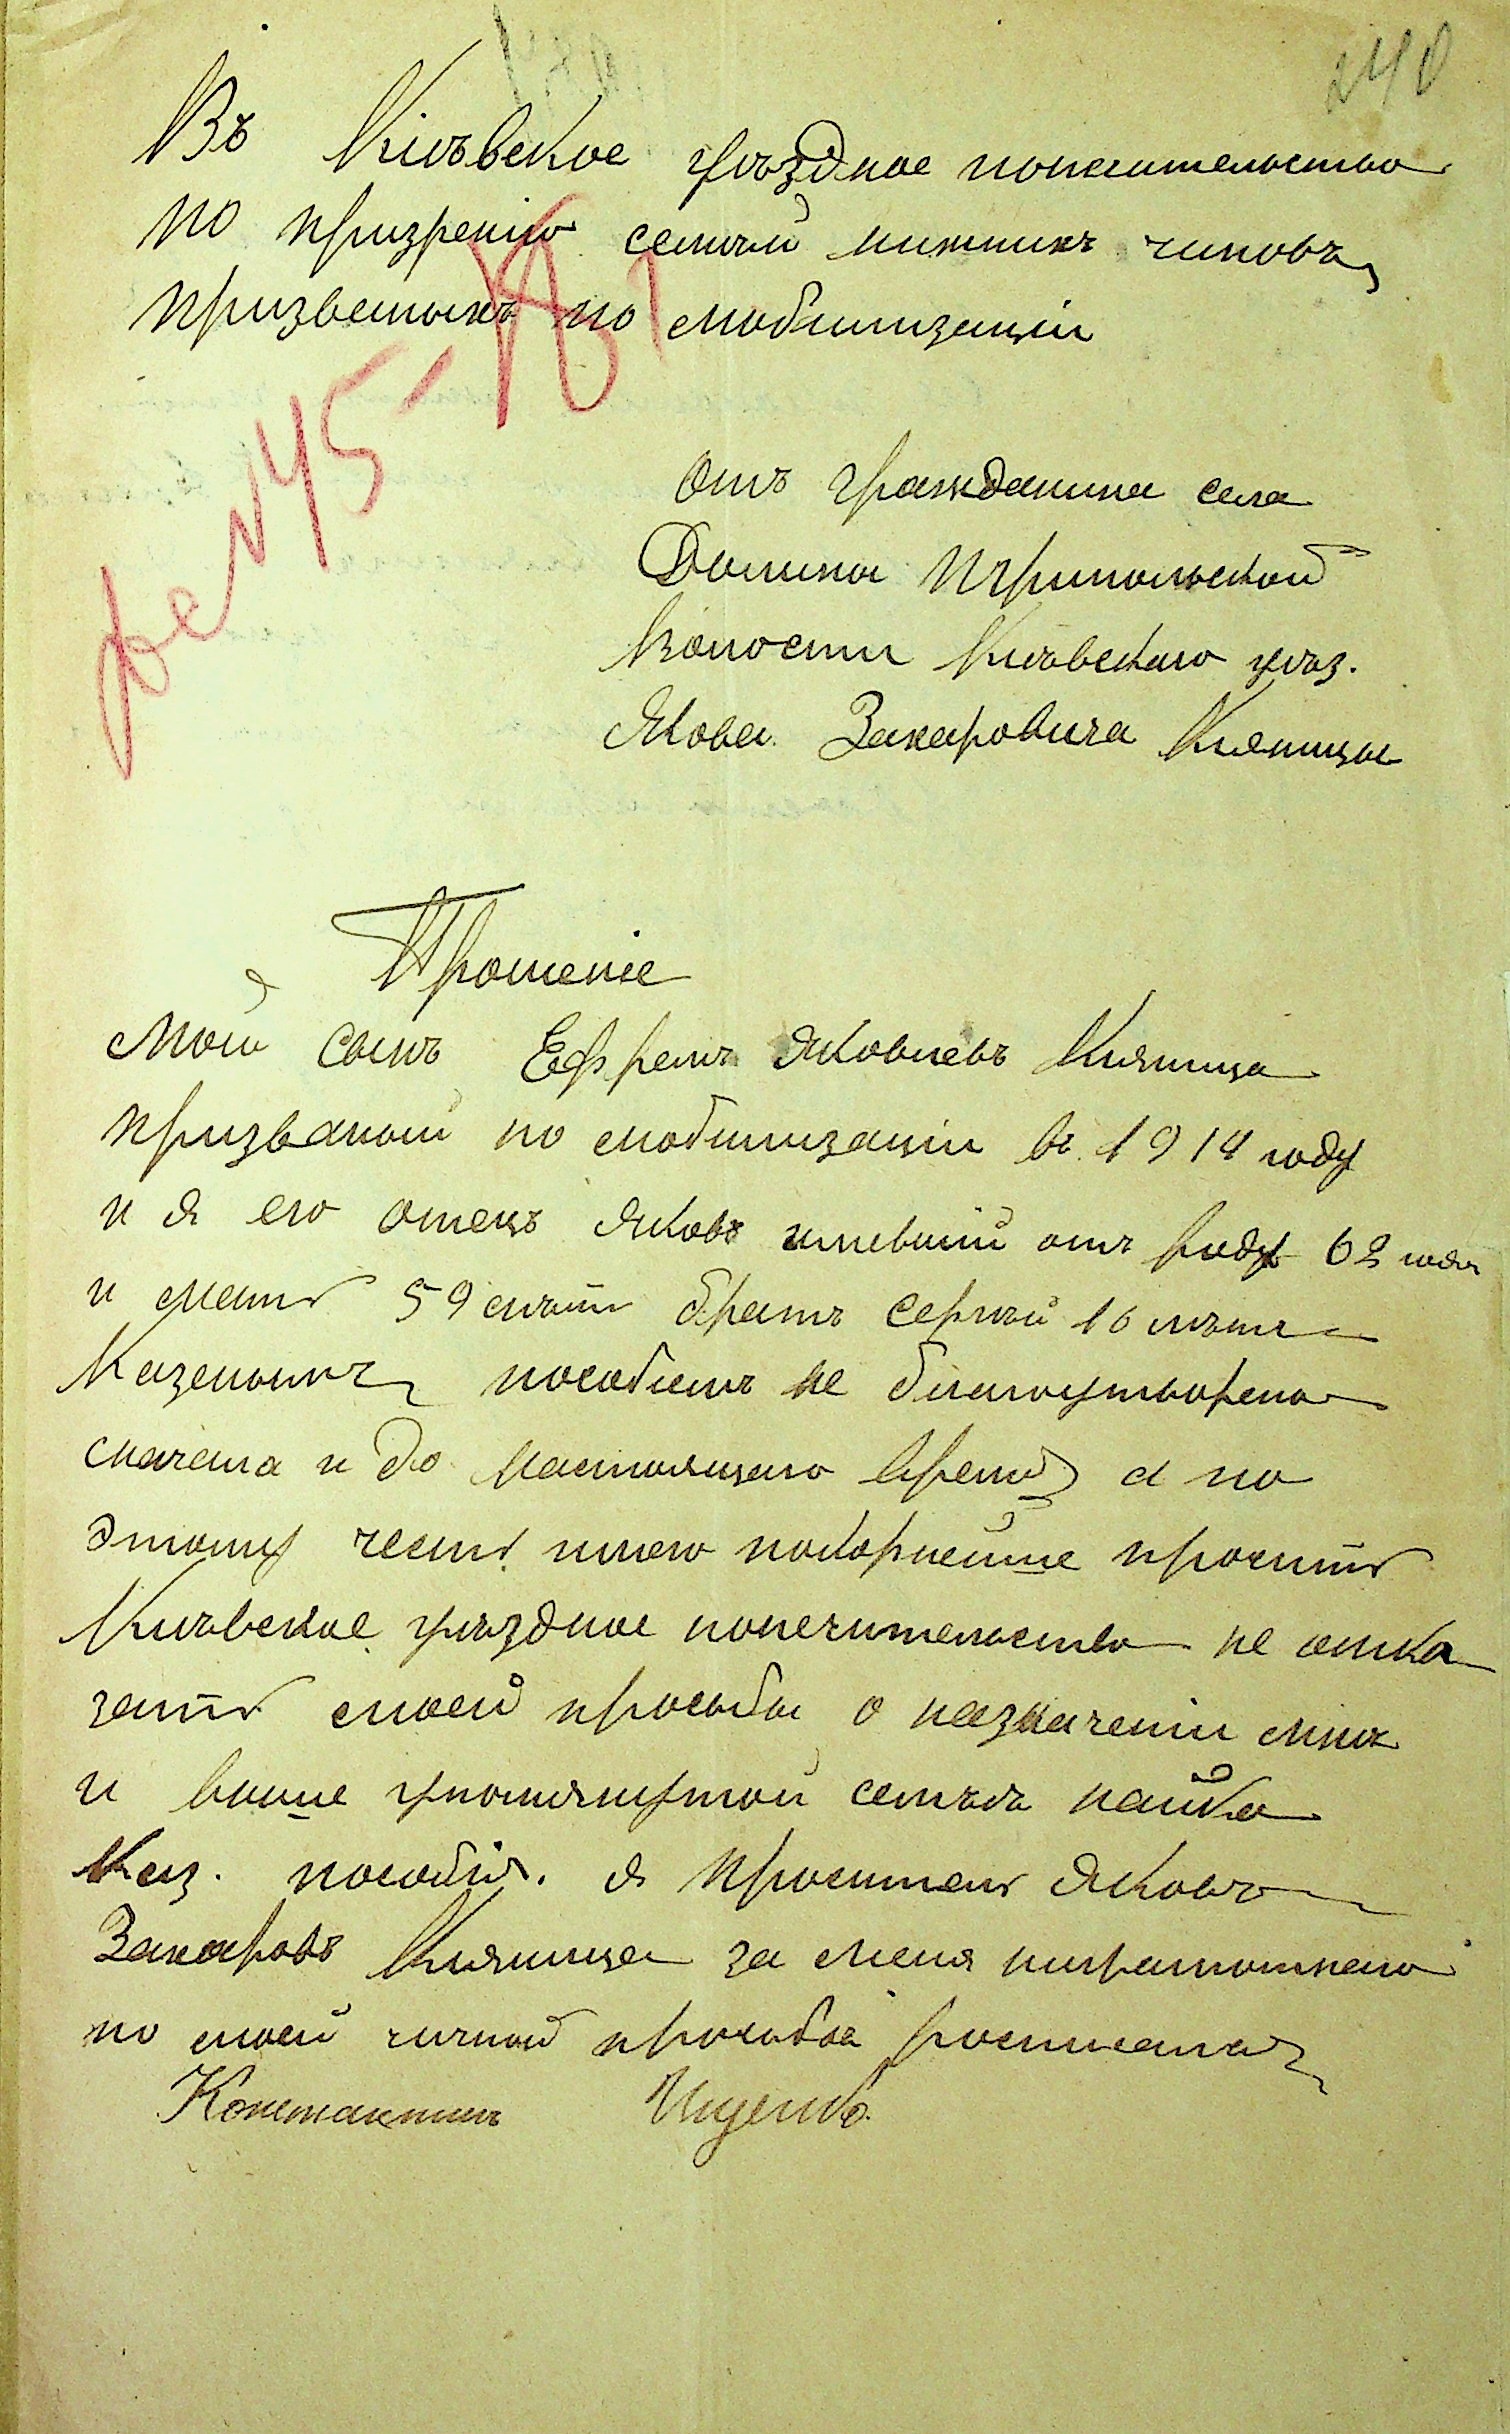 240
Въ Кіевское уѣздное попечительство
по призренію семѣй нижнихъ чиновъ,
призваныхъ по мобилизаціи
Отъ гражданина села
Долина Трипольской
Волости Киевскаго уѣз.
Якова Захаровича Княгицы
Прошеніе
Мой сынъ Ефремъ Яковлевъ
призваный по мобилизаціи въ 1914 году
и я его отецъ Яковъ имевший отъ роду 62 года
и мать 59 лѣтъ братъ Сергѣй 16 лѣтъ
Казенымъ пособиемъ не благоутворено
сначала и до настоящаго время а по
этому честь имею покорнейше просить
Киевское уѣздное попечительство не отка
зать моей просьбы о назначеніи мнѣ
и выше упомянутой семъѣ пайка
Каз. пособія. я проситель Яковъ
Захаровъ за меня ниграмотнаго
по моей личной прозьбѣ росписался
Константинъ Ищенко